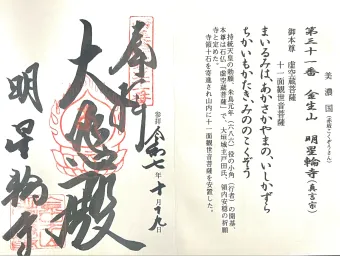 美濃国
第三十一番 金生山 明星輪寺(真言宗)
御本尊 虚空蔵菩薩
十一面観世音菩薩
まいるみは、あかさかやまの、いしかずら
ちかいもかたき、みののこくぞう
持統天皇の勅願、朱鳥元年(六八六)役の小角(行者)の開基、
本尊は石仏(虚空蔵菩薩)で、大垣城主戸田氏、領内安穏の祈願
寺と定め、
寺領十石を寄進され山内に十一面観世音菩薩を安置した。
奉拝
参拝 令和七年十月十九日
大悲殿
明星輪寺